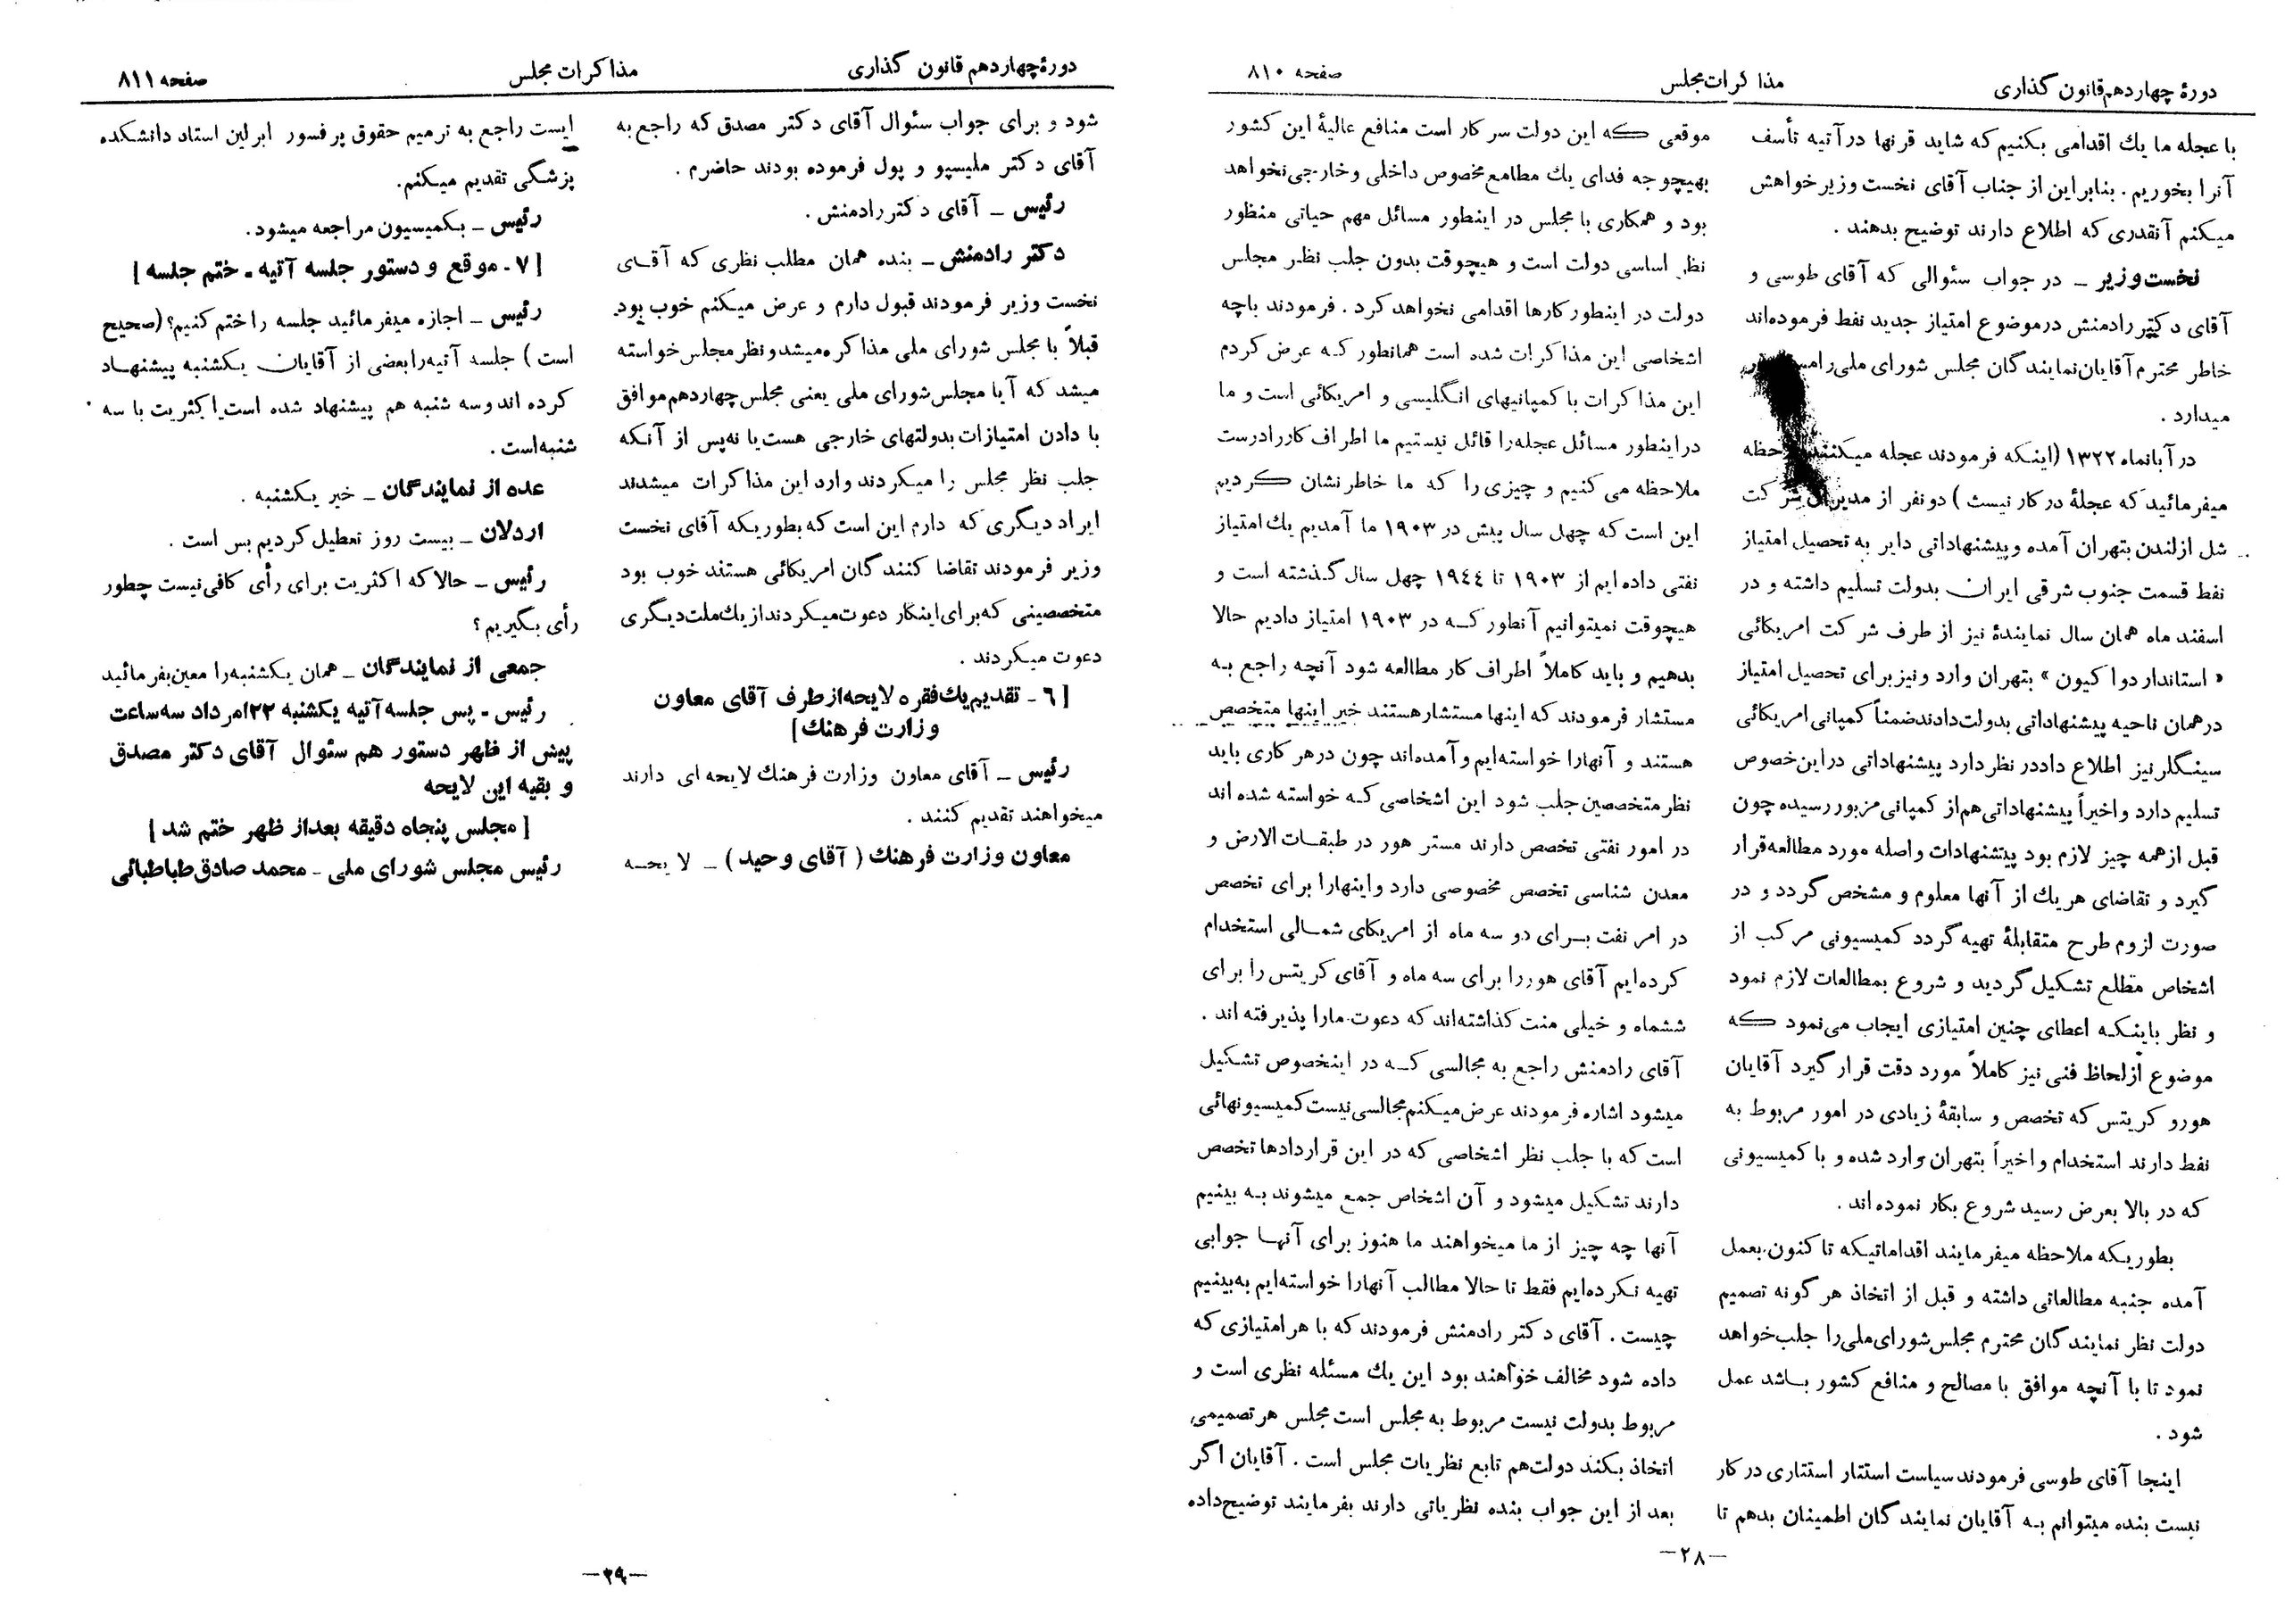 دورهٔ چهاردهم قانون گذاری
مذاکرات مجلس
صفحه ۸۱۰
با عجله ما یك اقدامی بکنیم که شاید قرنها در آتیه تأسف
آنرا بخوریم . بنابراین از جناب آقای نخست وزیر خواهش
میکنم آنقدری که اطلاع دارند توضیح بدهند .
نخست وزیر ـ در جواب سئوالی که آقای طوسی و
آقای دکتر رادمنش در موضوع امتیاز جدید نفط فرموده‌اند
خاطر محترم آقایان نمایندگان مجلس شورای ملی را
میدارد .
در آبانماه ۱۳۲۲ (اینکه فرمودند عجله میکنند
میفرمائید که عجلهٔ در کار نیست ) دو نفر از مدیران شرکت
شل ازلندن بتهران آمده و پیشنهاداتی دایر به تحصیل امتیاز
نفط قسمت جنوب شرقی ایران بدولت تسلیم داشته و در
اسفند ماه همان سال نمایندهٔ نیز از طرف شرکت امریکائی
« استاندارد واکیون » بتهران وارد و نیز برای تحصیل امتیاز
درهمان ناحیه پیشنهاداتی بدولت دادند ضمناً کمپانی امریکائی
سینگلر نیز اطلاع داد در نظر دارد پیشنهاداتی در این خصوص
تسلیم دارد و اخیراً پیشنهاداتی هم از کمپانی مزبور رسیده چون
قبل از همه چیز لازم بود پیشنهادات واصله مورد مطالعه قرار
گیرد و تقاضای هر یك از آنها معلوم و مشخص گردد و در
صورت لزوم طرح متقابلهٔ تهیه گردد کمیسیونی مرکب از
اشخاص مطلع تشکیل گردید و شروع بمطالعات لازم نمود
و نظر باینکه اعطای چنین امتیازی ایجاب می‌نمود که
موضوع از لحاظ فنی نیز کاملاً مورد دقت قرار گیرد آقایان
هور و کریتس که تخصص و سابقهٔ زیادی در امور مربوط به
نفط دارند استخدام و اخیراً بتهران وارد شده و با کمیسیونی
که در بالا بعرض رسید شروع بکار نموده‌اند .
بطوریکه ملاحظه میفرمایند اقداماتیکه تا کنون بعمل
آمده جنبه مطالعاتی داشته و قبل از اتخاذ هر گونه تصمیم
دولت نظر نمایندگان محترم مجلس شورای ملی را جلب خواهد
نمود تا با آنچه موافق با مصالح و منافع کشور باشد عمل
شود .
اینجا آقای طوسی فرمودند سیاست استتار استتاری در کار
نیست بنده میتوانم به آقایان نمایندگان اطمینان بدهم تا
موقعی که این دولت سر کار است منافع عالیهٔ این کشور
بهیچوجه فدای یك مطامع مخصوص داخلی و خارجی نخواهد
بود و همکاری با مجلس در اینطور مسائل مهم حیاتی منظور
نظر اساسی دولت است و هیچوقت بدون جلب نظر مجلس
دولت در اینطور کارها اقدامی نخواهد کرد . فرمودند باچه
اشخاصی این مذاکرات شده است همانطور که عرض کردم
این مذاکرات با کمپانیهای انگلیسی و امریکائی است و ما
در اینطور مسائل عجله را قائل نیستیم ما اطراف کار را درست
ملاحظه می کنیم و چیزی را که ما خاطر نشان کردیم
این است که چهل سال پیش در ۱۹۰۳ ما آمدیم یك امتیاز
نفتی داده‌ایم از ۱۹۰۳ تا ۱۹٤٤ چهل سال گذشته است و
هیچوقت نمیتوانیم آنطور که در ۱۹۰۳ امتیاز دادیم حالا
بدهیم و باید کاملاً اطراف کار مطالعه شود آنچه راجع به
مستشار فرمودند که اینها مستشار هستند خیر اینها متخصص
هستند و آنها را خواسته‌ایم و آمده‌اند چون در هر کاری باید
نظر متخصصین جلب شود این اشخاصی که خواسته شده اند
در امور نفتی تخصص دارند مستر هور در طبقات الارض و
معدن شناسی تخصص مخصوصی دارد و اینها را برای تخصص
در امر نفت برای دو سه ماه از امریکای شمالی استخدام
کرده‌ایم آقای هور را برای سه ماه و آقای کریتس را برای
ششماه و خیلی منت گذاشته‌اند که دعوت مارا پذیرفته اند .
آقای رادمنش راجع به مجالسی که در اینخصوص تشکیل
میشود اشاره فرمودند عرض میکنم مجالسی نیست کمیسیونهائی
است که با جلب نظر اشخاصی که در این قراردادها تخصص
دارند تشکیل میشود و آن اشخاص جمع میشوند به بینیم
آنها چه چیز از ما میخواهند ما هنوز برای آنها جوابی
تهیه نکرده‌ایم فقط تا حالا مطالب آنهارا خواسته‌ایم به‌بینیم
چیست . آقای دکتر رادمنش فرمودند که با هر امتیازی که
داده شود مخالف خواهند بود این یك مسئله نظری است و
مربوط بدولت نیست مربوط به مجلس است مجلس هر تصمیمی
اتخاذ بکند دولت‌هم تابع نظریات مجلس است . آقایان اگر
بعد از این جواب بنده نظریاتی دارند بفرمایند توضیح داده
ـ۲۸ـ
دورهٔ چهاردهم قانون گذاری
مذاکرات مجلس
صفحه ۸۱۱
شود و برای جواب سئوال آقای دکتر مصدق که راجع به
آقای دکتر ملیسپو و پول فرموده بودند حاضرم .
رئیس ـ آقای دکتر رادمنش .
دکتر رادمنش ـ بنده همان مطلب نظری که آقای
نخست وزیر فرمودند قبول دارم و عرض میکنم خوب بود
قبلاً با مجلس شورای ملی مذاکره میشد و نظر مجلس خواسته
میشد که آیا مجلس شورای ملی یعنی مجلس چهاردهم موافق
با دادن امتیازات بدولتهای خارجی هست یا نه پس از آنکه
جلب نظر مجلس را میکردند وارد این مذاکرات میشدند
ایراد دیگری که دارم این است که بطوریکه آقای نخست
وزیر فرمودند تقاضا کنندگان امریکائی هستند خوب بود
متخصصینی که برای اینکار دعوت میکردند از یك ملت دیگری
دعوت میکردند .
[ ٦ ـ تقدیم یك فقره لایحه از طرف آقای معاون
وزارت فرهنك]
رئیس ـ آقای معاون وزارت فرهنك لایحه ای دارند
میخواهند تقدیم کنند .
معاون وزارت فرهنك ( آقای وحید ) ـ لایحه
ایست راجع به ترمیم حقوق پرفسور ابرلین استاد دانشکده
پزشکی تقدیم میکنم.
رئیس ـ بکمیسیون مراجعه میشود.
[ ۷ ـ موقع و دستور جلسه آتیه ـ ختم جلسه ]
رئیس ـ اجازه میفرمائید جلسه را ختم کنیم؟ (صحیح
است ) جلسه آتیه را بعضی از آقایان یکشنبه پیشنهاد
کرده اند و سه شنبه هم پیشنهاد شده است اکثریت با سه
شنبه است .
عده از نمایندگان ـ خیر یکشنبه .
اردلان ـ بیست روز تعطیل کردیم بس است .
رئیس ـ حالا که اکثریت برای رأی کافی نیست چطور
رأی بگیریم ؟
جمعی از نمایندگان ـ همان یکشنبه را معین بفرمائید
رئیس ـ پس جلسه آتیه یکشنبه ۲۲ امرداد سه ساعت
پیش از ظهر دستور هم سئوال آقای دکتر مصدق
و بقیه این لایحه
[ مجلس پنجاه دقیقه بعداز ظهر ختم شد ]
رئیس مجلس شورای ملی ـ محمد صادق طباطبائی
ـ۲۹ـ